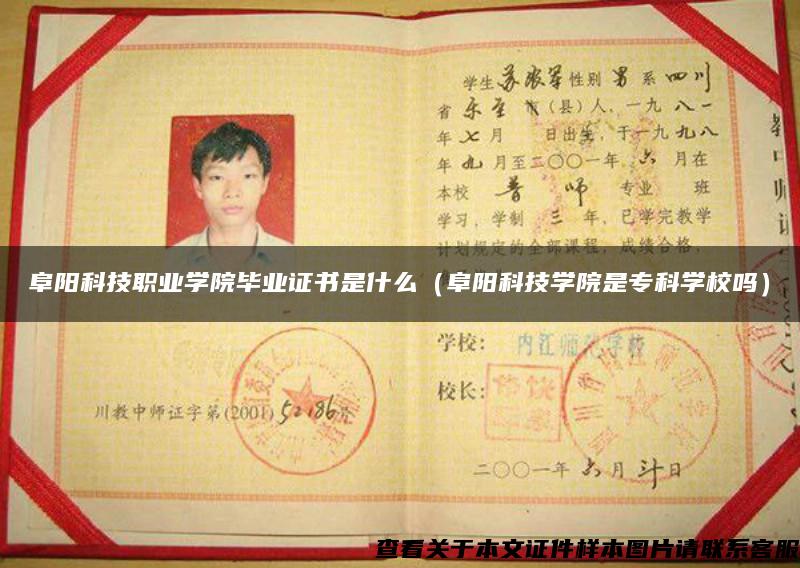 学生 苏 性别 男 系 四川
省 乐至 市（县）人，一九 八一
年 七 月 日出生，于一九 九八
年 九 月至二〇〇一年 六 月在
本校 普师 专业 班
学习，学制 三 年，已学完教学
计划规定的全部课程，成绩合格，
阜阳科技职业学院毕业证书是什么（阜阳科技学院是专科学校吗）
学校： 内江师范学校
校长：
川教中师证字第(2001)52186号
二〇〇一年 六 月 卅 日
查看关于本文证件样本图片请联系客服